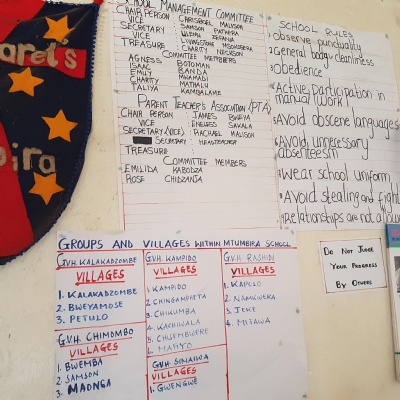 SCHOOL MANAGEMENT COMMITTEE
CHAIR PERSON CHRISSBOEL MALISON
VICE SAMSON PATHERA
SECRETARY WILEMA ZEFANIA
VICE LIVINGSTONE
TREASURE CHARITY NICKSON
COMMITTEE MEMBERS
AGNESS BOTOMAN
ISAAC BANDA
EMILY MWAMADI
CHARITY MATHALU
TALIYA KAMBALAME
PARENT TEACHER'S ASSOCIATION (PTA)
CHAIR PERSON : JAMES BWEYA
VICE : ENELESS SAKALA
SECRETARY (VICE) : RACHAEL MALISON
SECRETARY : HEADTEACHER
TREASURE :
COMMITTEE MEMBERS
EMILIDA KABOOZA
ROSE CHIDZANJA
SCHOOL RULES
Observe punctuality
General body cleanliness
Obedience
Active participation in
manual work
Avoid obscene languages
Avoid unnecessary
absenteeism
Wear school uniform
Avoid stealing and fight
Relationships are not allow
aret's
bira
GROUPS AND VILLAGES WITHIN MTUMBIRA SCHOOL
GVH. KALAKADZOMBE
VILLAGES
1. KALAKADZOMBE
2. BWEYAMOSE
3. PETULO
GVH. CHIMOMBO
VILLAGES
1. BWEMBA
2. SAMSON
3. MADNGA
GVH. KAMPIDO
VILLAGES
1. KAMPIDO
2. CHINGAMPHETA
3. CHIKUMBA
4. KACHIWALA
5. CHISEMBWERE
6. MARYO
GVH. SIMAIWA
VILLAGES
1. GWENGWE
GVH. RASHIDI
VILLAGES
1. KAPULO
2. NAMKWERA
3. JEKE
4. MITAWA
DO NOT JUDGE
YOUR PROGRESS
BY OTHERS